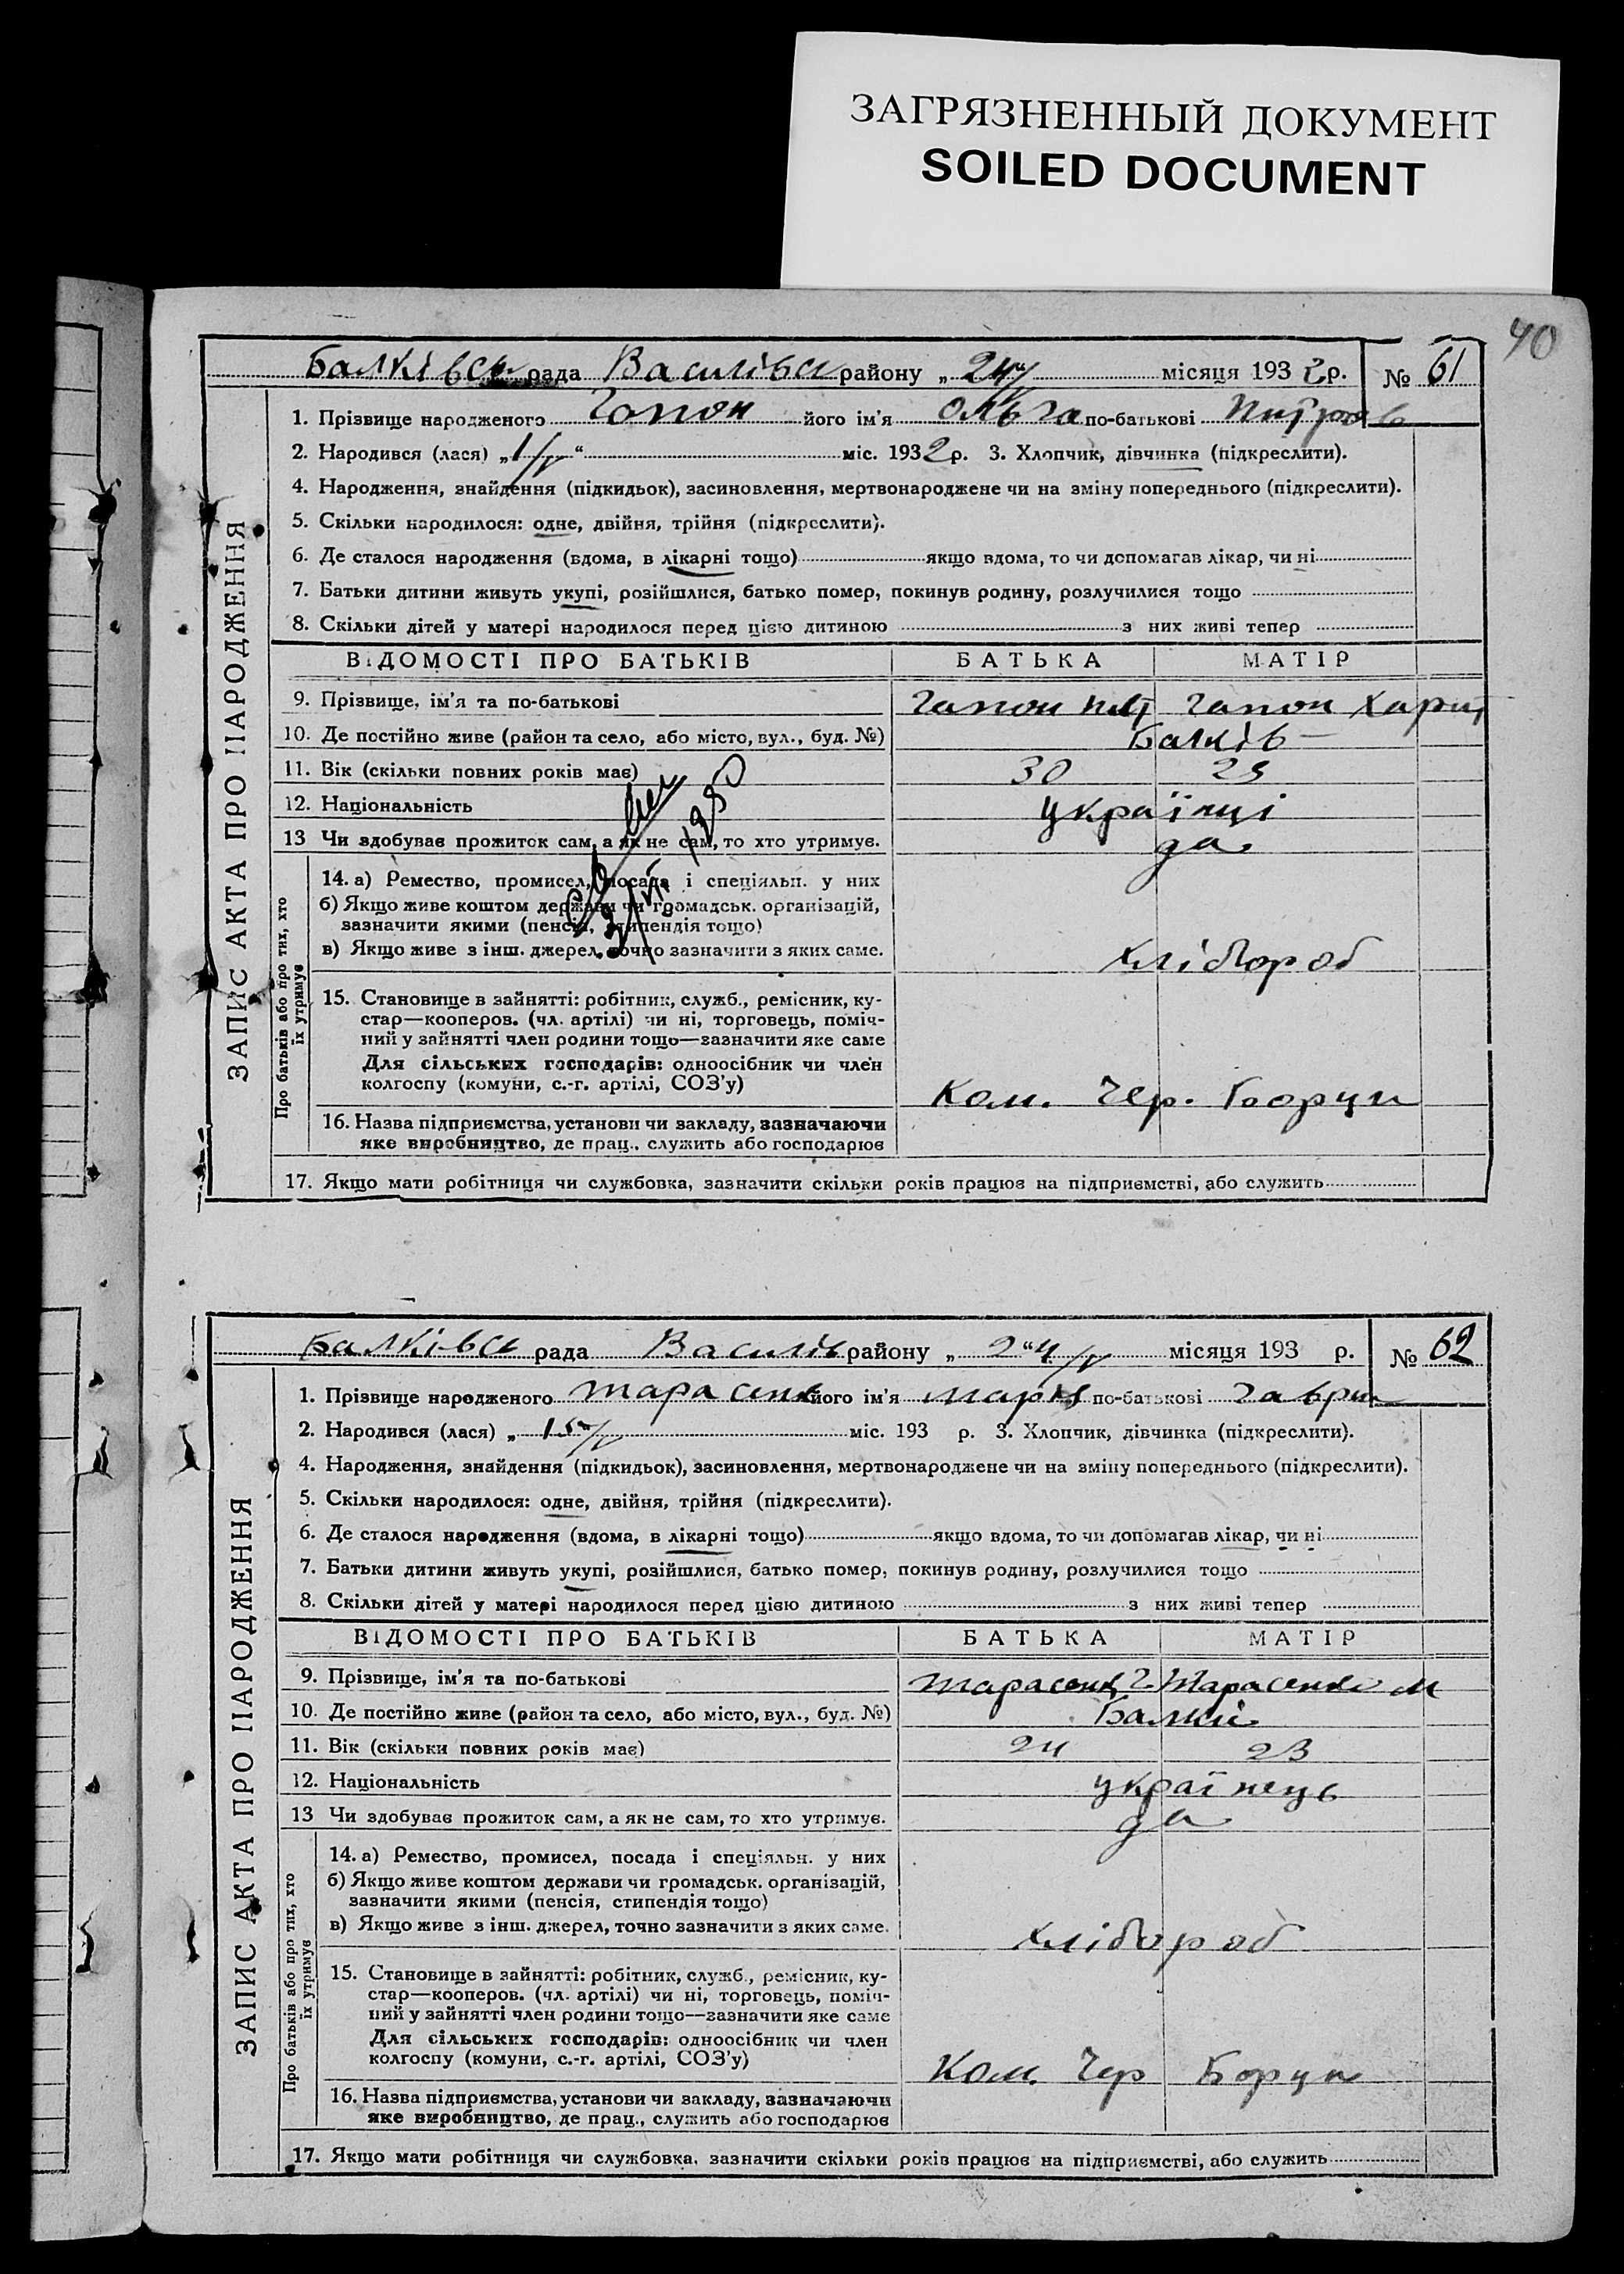 ЗАГРЯЗНЕННЫЙ ДОКУМЕНТ
SOILED DOCUMENT
40
Балківсь рада Василівсь району „ 24/V місяця 1932 р. № 61
1. Прізвище народженого Гапон його ім'я Ольга по-батькові
2. Народився (лася) „1/V“ міс. 1932 р. 3. Хлопчик, дівчинка (підкреслити).
4. Народження, знайдення (підкидьок), засиновлення, мертвонароджене чи на зміну попереднього (підкреслити).
5. Скільки народилося: одне, двійня, трійня (підкреслити).
6. Де сталося народження (вдома, в лікарні тощо) якщо вдома, то чи допомагав лікар, чи ні
7. Батьки дитини живуть укупі, розійшлися, батько помер, покинув родину, розлучилися тощо
8. Скільки дітей у матері народилося перед цією дитиною з них живі тепер
ВІДОМОСТІ ПРО БАТЬКІВ БАТЬКА МАТІР
9. Прізвище, ім'я та по-батькові Гапон Гапон Харит
10. Де постійно живе (район та село, або місто, вул., буд. №) Балків
11. Вік (скільки повних років має) 30
12. Національність українці
13 Чи здобуває прожиток сам, а як не сам, то хто утримує. да
14. а) Ремество, промисел, посада і спеціяльн. у них
б) Якщо живе коштом держави чи громадськ. організацій,
зазначити якими (пенсія, стипендія тощо)
в) Якщо живе з інш. джерел, точно зазначити з яких саме.
хлібороб
15. Становище в зайнятті: робітник, служб., ремісник, ку-
стар—кооперов. (чл. артілі) чи ні, торговець, поміч-
ний у зайнятті член родини тощо—зазначити яке саме
Для сільських господарів: одноосібник чи член
колгоспу (комуни, с.-г. артілі, СОЗ'у)
Ком. Чер. Борци
16. Назва підприємства, установи чи закладу, зазначаючи
яке виробництво, де прац., служить або господарює
17. Якщо мати робітниця чи службовка, зазначити скільки років працює на підприємстві, або служить
ЗАПИС АКТА ПРО НАРОДЖЕННЯ
Про батьків або про тих, хто
їх утримує
1950
Балківсь рада Василів району „ 24/V місяця 193 р. № 62
1. Прізвище народженого Тарасенк його ім'я Марія по-батькові Гаври
2. Народився (лася) „ 15/V міс. 193 р. 3. Хлопчик, дівчинка (підкреслити).
4. Народження, знайдення (підкидьок), засиновлення, мертвонароджене чи на зміну попереднього (підкреслити).
5. Скільки народилося: одне, двійня, трійня (підкреслити).
6. Де сталося народження (вдома, в лікарні тощо) якщо вдома, то чи допомагав лікар, чи ні
7. Батьки дитини живуть укупі, розійшлися, батько помер, покинув родину, розлучилися тощо
8. Скільки дітей у матері народилося перед цією дитиною з них живі тепер
ВІДОМОСТІ ПРО БАТЬКІВ БАТЬКА МАТІР
9. Прізвище, ім'я та по-батькові Тарасенк Г Тарасенко М
10. Де постійно живе (район та село, або місто, вул., буд. №) Балки
11. Вік (скільки повних років має) 24 23
12. Національність українець
13 Чи здобуває прожиток сам, а як не сам, то хто утримує. да
14. а) Ремество, промисел, посада і спеціяльн. у них
б) Якщо живе коштом держави чи громадськ. організацій,
зазначити якими (пенсія, стипендія тощо)
в) Якщо живе з інш. джерел, точно зазначити з яких саме.
хлібороб
15. Становище в зайнятті: робітник, служб., ремісник, ку-
стар—кооперов. (чл. артілі) чи ні, торговець, поміч-
ний у зайнятті член родини тощо—зазначити яке саме
Для сільських господарів: одноосібник чи член
колгоспу (комуни, с.-г. артілі, СОЗ'у)
Ком. Чер Борци
16. Назва підприємства, установи чи закладу, зазначаючи
яке виробництво, де прац., служить або господарює
17. Якщо мати робітниця чи службовка, зазначити скільки років працює на підприємстві, або служить
ЗАПИС АКТА ПРО НАРОДЖЕННЯ
Про батьків або про тих, хто
їх утримує